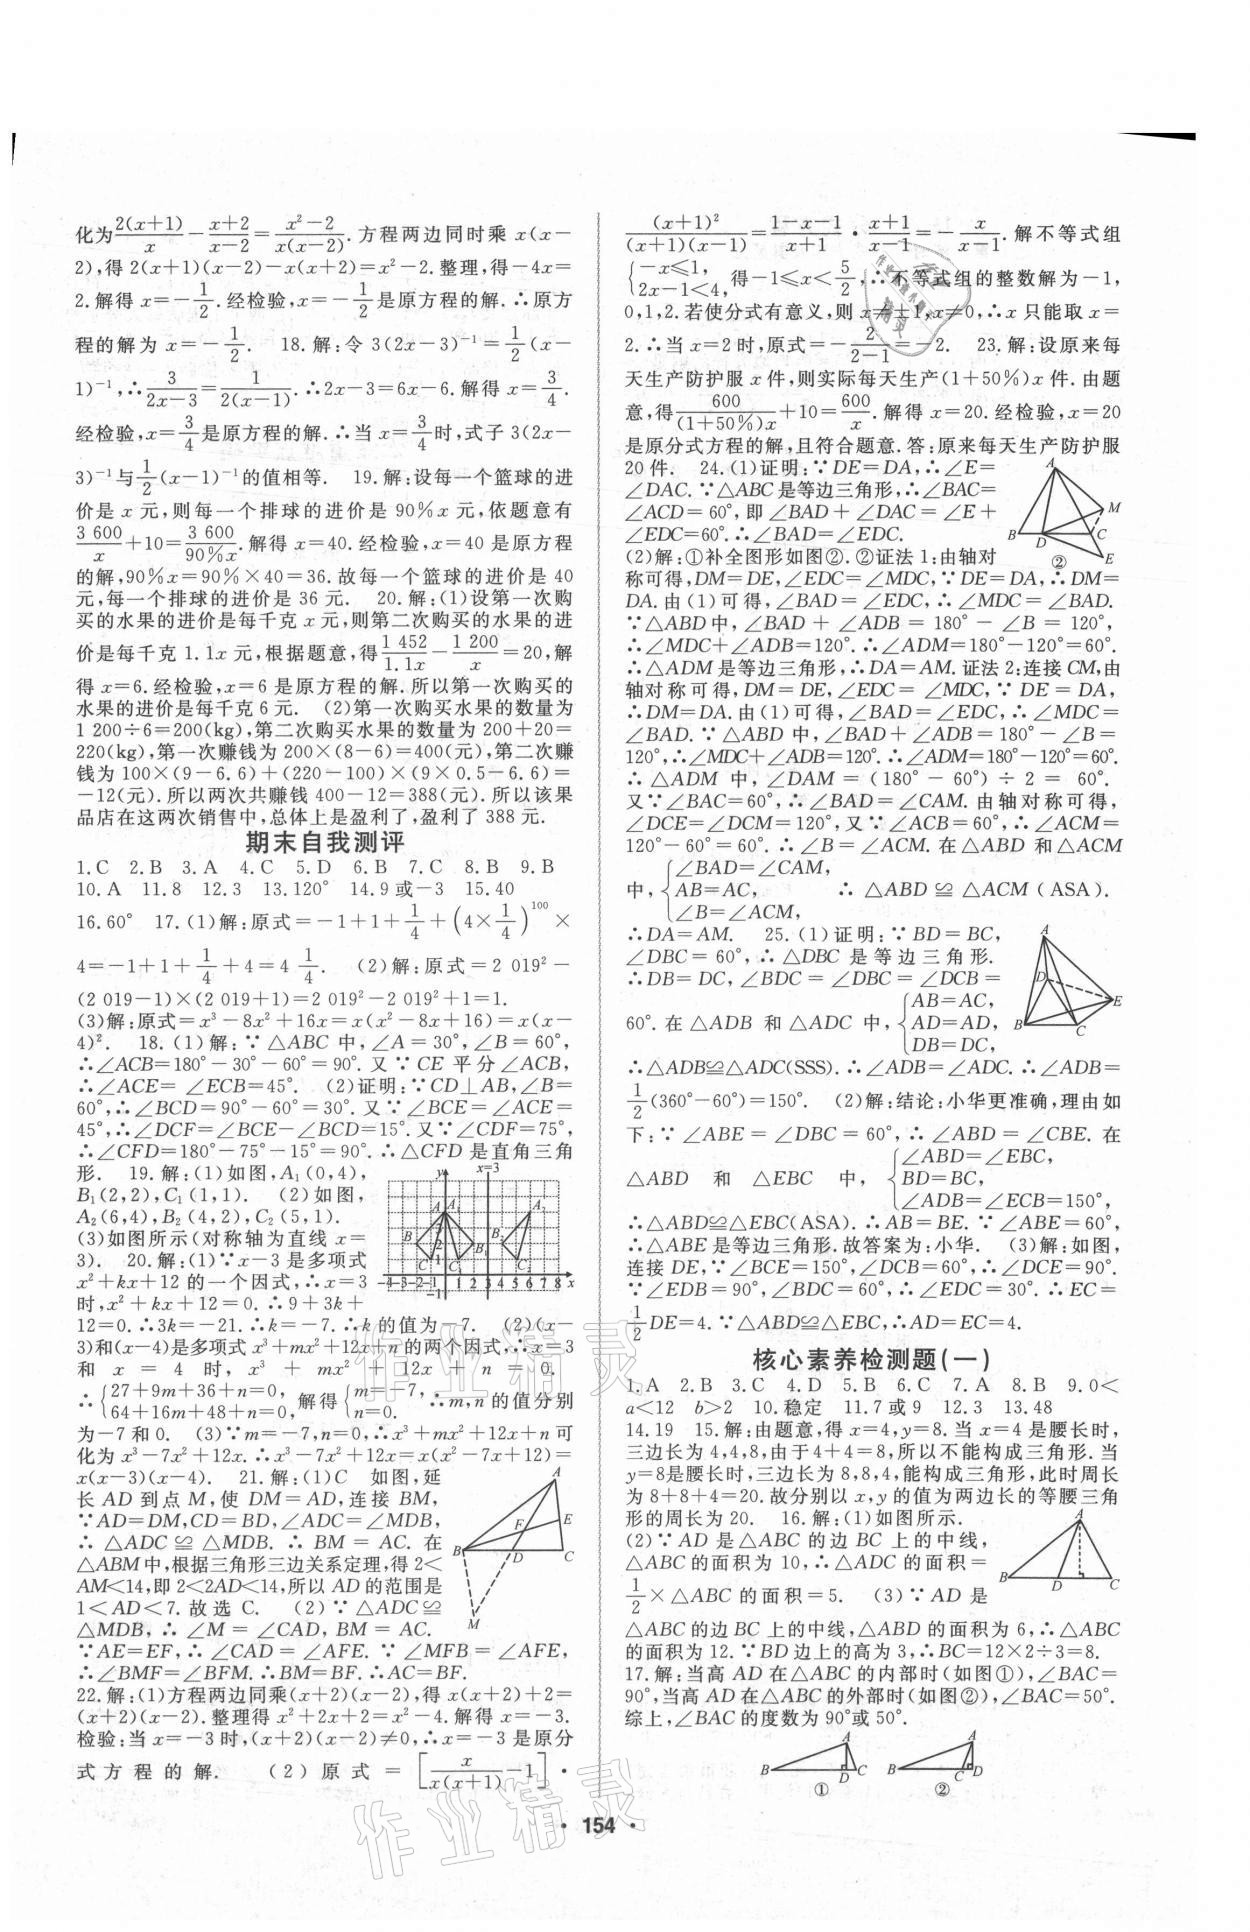 化为2(x+1)/x-(x+2)/(x-2)=(x²-2)/(x(x-2)).方程两边同时乘 x(x-
2),得 2(x+1)(x-2)-x(x+2)=x²-2.整理,得-4x=
2.解得 x=-1/2.经检验,x=-1/2是原方程的解.∴原方
程的解为 x=-1/2. 18.解:令 3(2x-3)⁻¹=1/2(x-
1)⁻¹,∴3/(2x-3)=1/(2(x-1)).∴2x-3=6x-6.解得 x=3/4.
经检验,x=3/4是原方程的解.∴当 x=3/4时,式子 3(2x-
3)⁻¹与1/2(x-1)⁻¹的值相等. 19.解:设每一个篮球的进
价是 x 元,则每一个排球的进价是 90%x 元,依题意有
3 600/x+10=3 600/90%x.解得 x=40.经检验,x=40 是原方程
的解,90%x=90%×40=36.故每一个篮球的进价是 40
元,每一个排球的进价是 36 元. 20.解:(1)设第一次购
买的水果的进价是每千克 x 元,则第二次购买的水果的进
价是每千克 1.1x 元,根据题意,得1 452/1.1x-1 200/x=20,解
得 x=6.经检验,x=6 是原方程的解.所以第一次购买的
水果的进价是每千克 6 元. (2)第一次购买水果的数量为
1 200÷6=200(kg),第二次购买水果的数量为 200+20=
220(kg),第一次赚钱为 200×(8-6)=400(元),第二次赚
钱为 100×(9-6.6)+(220-100)×(9×0.5-6.6)=
-12(元).所以两次共赚钱 400-12=388(元).所以该果
品店在这两次销售中,总体上是盈利了,盈利了 388 元.
期末自我测评
1.C 2.B 3.A 4.C 5.D 6.B 7.C 8.B 9.B
10.A 11.8 12.3 13.120° 14.9 或-3 15.40
16.60° 17.(1)解:原式=-1+1+1/4+(4×1/4)¹⁰⁰×
4=-1+1+1/4+4=4 1/4. (2)解:原式=2 019²-
(2 019-1)×(2 019+1)=2 019²-2 019²+1=1.
(3)解:原式=x³-8x²+16x=x(x²-8x+16)=x(x-
4)². 18.(1)解:∵△ABC 中,∠A=30°,∠B=60°,
∴∠ACB=180°-30°-60°=90°.又∵CE 平分∠ACB,
∴∠ACE=∠ECB=45°. (2)证明:∵CD⊥AB,∠B=
60°,∴∠BCD=90°-60°=30°.又∵∠BCE=∠ACE=
45°,∴∠DCF=∠BCE-∠BCD=15°.又∵∠CDF=75°,
∴∠CFD=180°-75°-15°=90°.∴△CFD 是直角三角
形. 19.解:(1)如图,A₁(0,4),
B₁(2,2),C₁(1,1). (2)如图,
A₂(6,4),B₂(4,2),C₂(5,1).
(3)如图所示(对称轴为直线 x=
3). 20.解:(1)∵x-3 是多项式
x²+kx+12 的一个因式,∴x=3
时,x²+kx+12=0.∴9+3k+
12=0.∴3k=-21.∴k=-7.∴k 的值为-7. (2)(x-
3)和(x-4)是多项式 x³+mx²+12x+n 的两个因式,∴x=3
和 x=4 时,x³+mx²+12x+n=0.
∴{27+9m+36+n=0, 64+16m+48+n=0, 解得{m=-7, n=0. ∴m,n 的值分别
为-7 和 0. (3)∵m=-7,n=0,∴x³+mx²+12x+n 可
化为 x³-7x²+12x.∴x³-7x²+12x=x(x²-7x+12)=
x(x-3)(x-4). 21.解:(1)C 如图,延
长 AD 到点 M,使 DM=AD,连接 BM,
∵AD=DM,CD=BD,∠ADC=∠MDB,
∴△ADC≌△MDB.∴BM=AC.在
△ABM 中,根据三角形三边关系定理,得 2<
AM<14,即 2<2AD<14,所以 AD 的范围是
1<AD<7.故选 C. (2)∵△ADC≌
△MDB,∴∠M=∠CAD,BM=AC.
∵AE=EF,∴∠CAD=∠AFE.∵∠MFB=∠AFE,
∴∠BMF=∠BFM.∴BM=BF.∴AC=BF.
22.解:(1)方程两边同乘(x+2)(x-2),得 x(x+2)+2=
(x+2)(x-2).整理得 x²+2x+2=x²-4.解得 x=-3.
检验:当 x=-3 时,(x+2)(x-2)≠0,∴x=-3 是原分
式方程的解. (2)原式=[x/(x(x+1))-1]·
(x+1)²/((x+1)(x-1))=(1-x-1)/(x+1)·(x+1)/(x-1)=-x/(x-1).解不等式组
{-x≤1, 2x-1<4, 得-1≤x<5/2,∴不等式组的整数解为-1,
0,1,2.若使分式有意义,则 x≠±1,x≠0,∴x 只能取 x=
2.∴当 x=2 时,原式=-2/(2-1)=-2. 23.解:设原来每
天生产防护服 x 件,则实际每天生产(1+50%)x 件.由题
意,得600/((1+50%)x)+10=600/x.解得 x=20.经检验,x=20
是原分式方程的解,且符合题意.答:原来每天生产防护服
20 件. 24.(1)证明:∵DE=DA,∴∠E=
∠DAC.∵△ABC 是等边三角形,∴∠BAC=
∠ACD=60°,即∠BAD+∠DAC=∠E+
∠EDC=60°.∴∠BAD=∠EDC.
(2)解:①补全图形如图②.②证法 1:由轴对
称可得,DM=DE,∠EDC=∠MDC,∵DE=DA,∴DM=
DA.由(1)可得,∠BAD=∠EDC,∴∠MDC=∠BAD.
∵△ABD 中,∠BAD+∠ADB=180°-∠B=120°,
∴∠MDC+∠ADB=120°.∴∠ADM=180°-120°=60°.
∴△ADM 是等边三角形,∴DA=AM.证法 2:连接 CM,由
轴对称可得,DM=DE,∠EDC=∠MDC,∵DE=DA,
∴DM=DA.由(1)可得,∠BAD=∠EDC,∴∠MDC=
∠BAD.∵△ABD 中,∠BAD+∠ADB=180°-∠B=
120°,∴∠MDC+∠ADB=120°.∴∠ADM=180°-120°=60°.
∴△ADM 中,∠DAM=(180°-60°)÷2=60°.
又∵∠BAC=60°,∴∠BAD=∠CAM.由轴对称可得,
∠DCE=∠DCM=120°,又∵∠ACB=60°,∴∠ACM=
120°-60°=60°.∴∠B=∠ACM.在△ABD 和△ACM
中,{∠BAD=∠CAM, AB=AC, ∠B=∠ACM, ∴△ABD≌△ACM(ASA).
∴DA=AM. 25.(1)证明:∵BD=BC,
∠DBC=60°,∴△DBC 是等边三角形.
∴DB=DC,∠BDC=∠DBC=∠DCB=
60°.在△ADB 和△ADC 中,{AB=AC, AD=AD, DB=DC,
∴△ADB≌△ADC(SSS).∴∠ADB=∠ADC.∴∠ADB=
1/2(360°-60°)=150°. (2)解:结论:小华更准确,理由如
下:∵∠ABE=∠DBC=60°,∴∠ABD=∠CBE.在
△ABD 和 △EBC 中,{∠ABD=∠EBC, BD=BC, ∠ADB=∠ECB=150°,
∴△ABD≌△EBC(ASA).∴AB=BE.∵∠ABE=60°,
∴△ABE 是等边三角形.故答案为:小华. (3)解:如图,
连接 DE,∵∠BCE=150°,∠DCB=60°,∴∠DCE=90°.
∵∠EDB=90°,∠BDC=60°,∴∠EDC=30°.∴EC=
1/2DE=4.∵△ABD≌△EBC,∴AD=EC=4.
核心素养检测题(一)
1.A 2.B 3.C 4.D 5.B 6.C 7.A 8.B 9.0<
a<12 b>2 10.稳定 11.7 或 9 12.3 13.48
14.19 15.解:由题意,得 x=4,y=8.当 x=4 是腰长时,
三边长为 4,4,8,由于 4+4=8,所以不能构成三角形.当
y=8是腰长时,三边长为 8,8,4,能构成三角形,此时周长
为 8+8+4=20.故分别以 x,y 的值为两边长的等腰三角
形的周长为 20. 16.解:(1)如图所示.
(2)∵AD 是△ABC 的边 BC 上的中线,
△ABC 的面积为 10,∴△ADC 的面积=
1/2×△ABC 的面积=5. (3)∵AD 是
△ABC 的边 BC 上的中线,△ABD 的面积为 6,∴△ABC
的面积为 12.∵BD 边上的高为 3,∴BC=12×2÷3=8.
17.解:当高 AD 在△ABC 的内部时(如图①),∠BAC=
90°,当高 AD 在△ABC 的外部时(如图②),∠BAC=50°.
综上,∠BAC 的度数为 90°或 50°.
① ②
· 154 ·
作业精灵
作业精灵